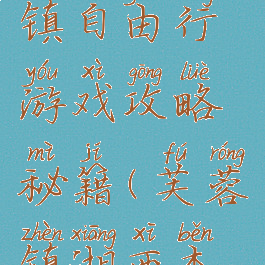 镇自由行
yóu xì gōng lüè
游戏攻略
mì jí fú róng
秘籍(芙蓉
zhèn xiāng xī běn
镇湘西本